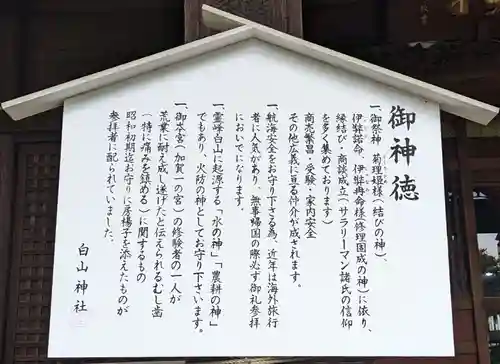 御神徳
一、御祭神 菊理姫様（結びの神）、
伊弉諾命、伊弉冉命様（修理固成の神）に依り、
縁結び・商談成立（サラリーマン諸氏の信仰
を多く集めております）
商売繁昌・受験・家内安全
その他広義に亘る仲介が成されます。
一、航海安全をお守り下さる為、近年は海外旅行
者に人気があり、無事帰国の際必ず御礼参拝
においでになります。
一、霊峰白山に起源する「水の神」「農耕の神」
でもあり、火防の神としてお守り下さいます。
一、御本宮（加賀一の宮）の修験者の一人が
荒業に耐え成し遂げたと伝えられるむし歯
（特に痛みを鎮める）に関するもの
昭和初期迄お守りに房楊子を添えたものが
参拝者に配られていました。
白山神社